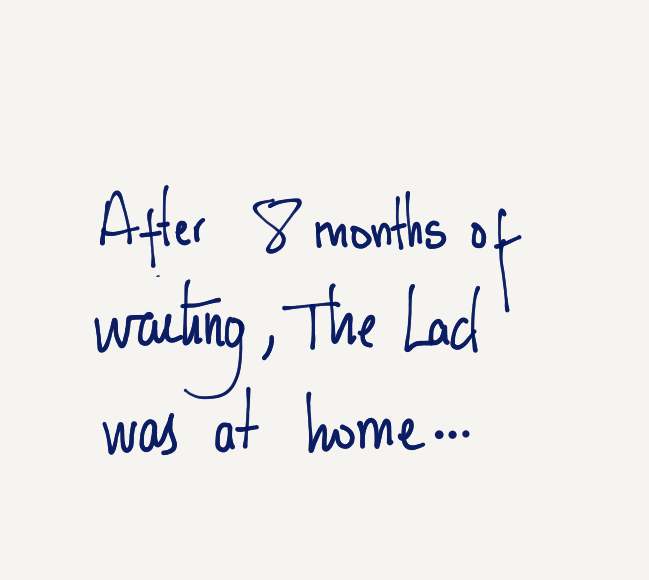 After 8 months of
waiting, The Lad
was at home...